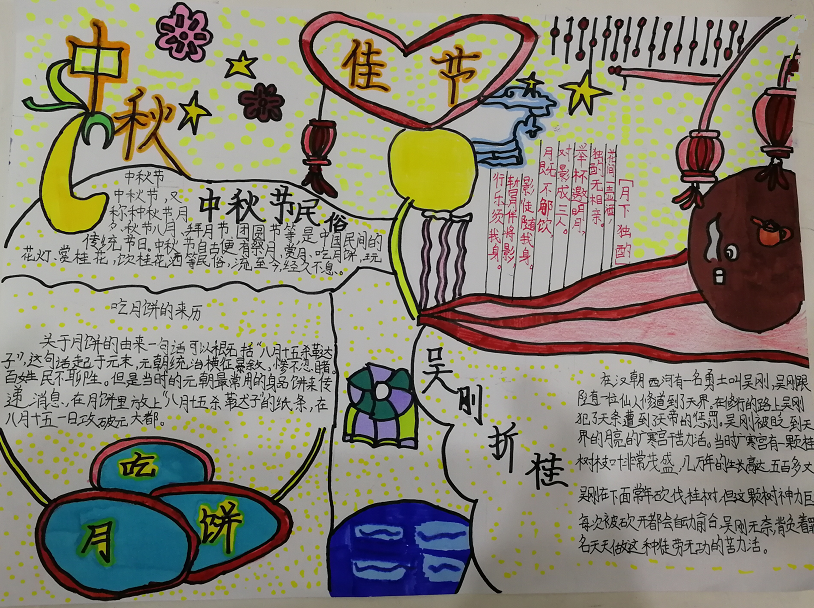 中秋
佳节
中秋节民俗
中秋节
中秋节,又
称仲秋节月
夕,秋节八月,拜月节,团圆节等,是中国民间的
传统节日,中秋节自古便有祭月、赏月、吃月饼、玩
花灯、赏桂花,饮桂花酒等民俗,流至今,经久不息。
『月下独酌』
花间一壶酒
独酌无相亲。
举杯邀明月,
对影成三人。
月既不够饮,
影徒随我身。
暂月伴将影
行乐须我身。
吃月饼的来历
关于月饼的由来一句话可以概括“八月十五杀鞑达
子”,这句话起于元末,元朝统治横征暴敛,惨不忍睹,
百姓民不聊生。但是当时的元朝最常用的食品饼来传
递消息,在月饼里放上“八月十五杀鞑达子”的纸条,在
八月十五一日攻破元大都。
吃
月
饼
吴刚折桂
在汉朝西河有一名勇士叫吴刚,吴刚跟
随一位仙人修道到了天界。在修行的路上吴刚
犯了天条遭到了天帝的惩罚。吴刚被贬到天
界的月亮的广寒宫干苦力活。当时广寒宫有一颗桂
树枝叶非常茂盛,几万年的生长高达五百多丈
吴刚在下面常年砍伐桂树,但这颗树神力巨
每次被砍开都会自动愈合,吴刚无奈,背负着罪
名天天做这种徒劳无功的苦力活。